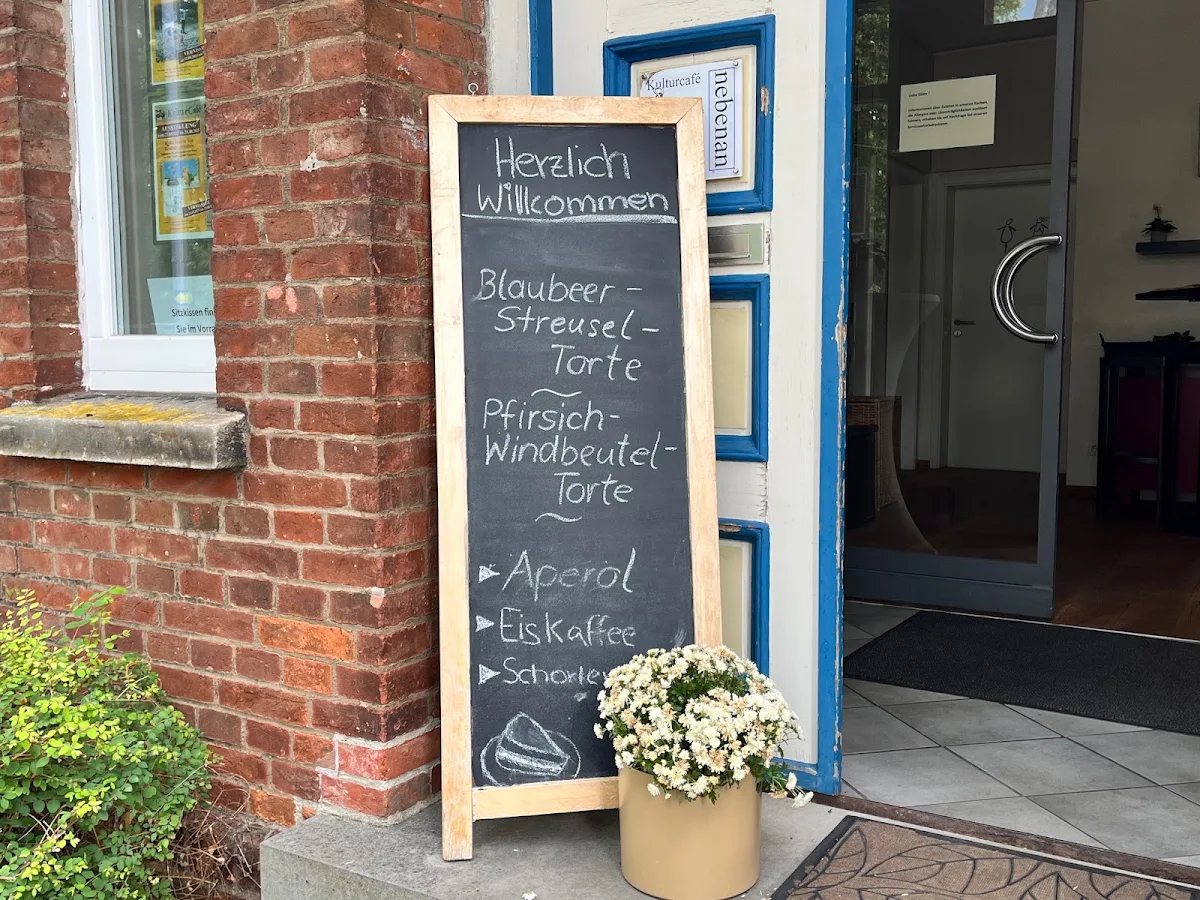 Herzlich
Willkommen
Blaubeer-
Streusel-
Torte
Pfirsich-
Windbeutel-
Torte
Aperol
Eiskaffee
Schorlen
Kulturcafé
nebenan
AUSSTELLUNG
Sitzkissen fin
Sie im Vorra